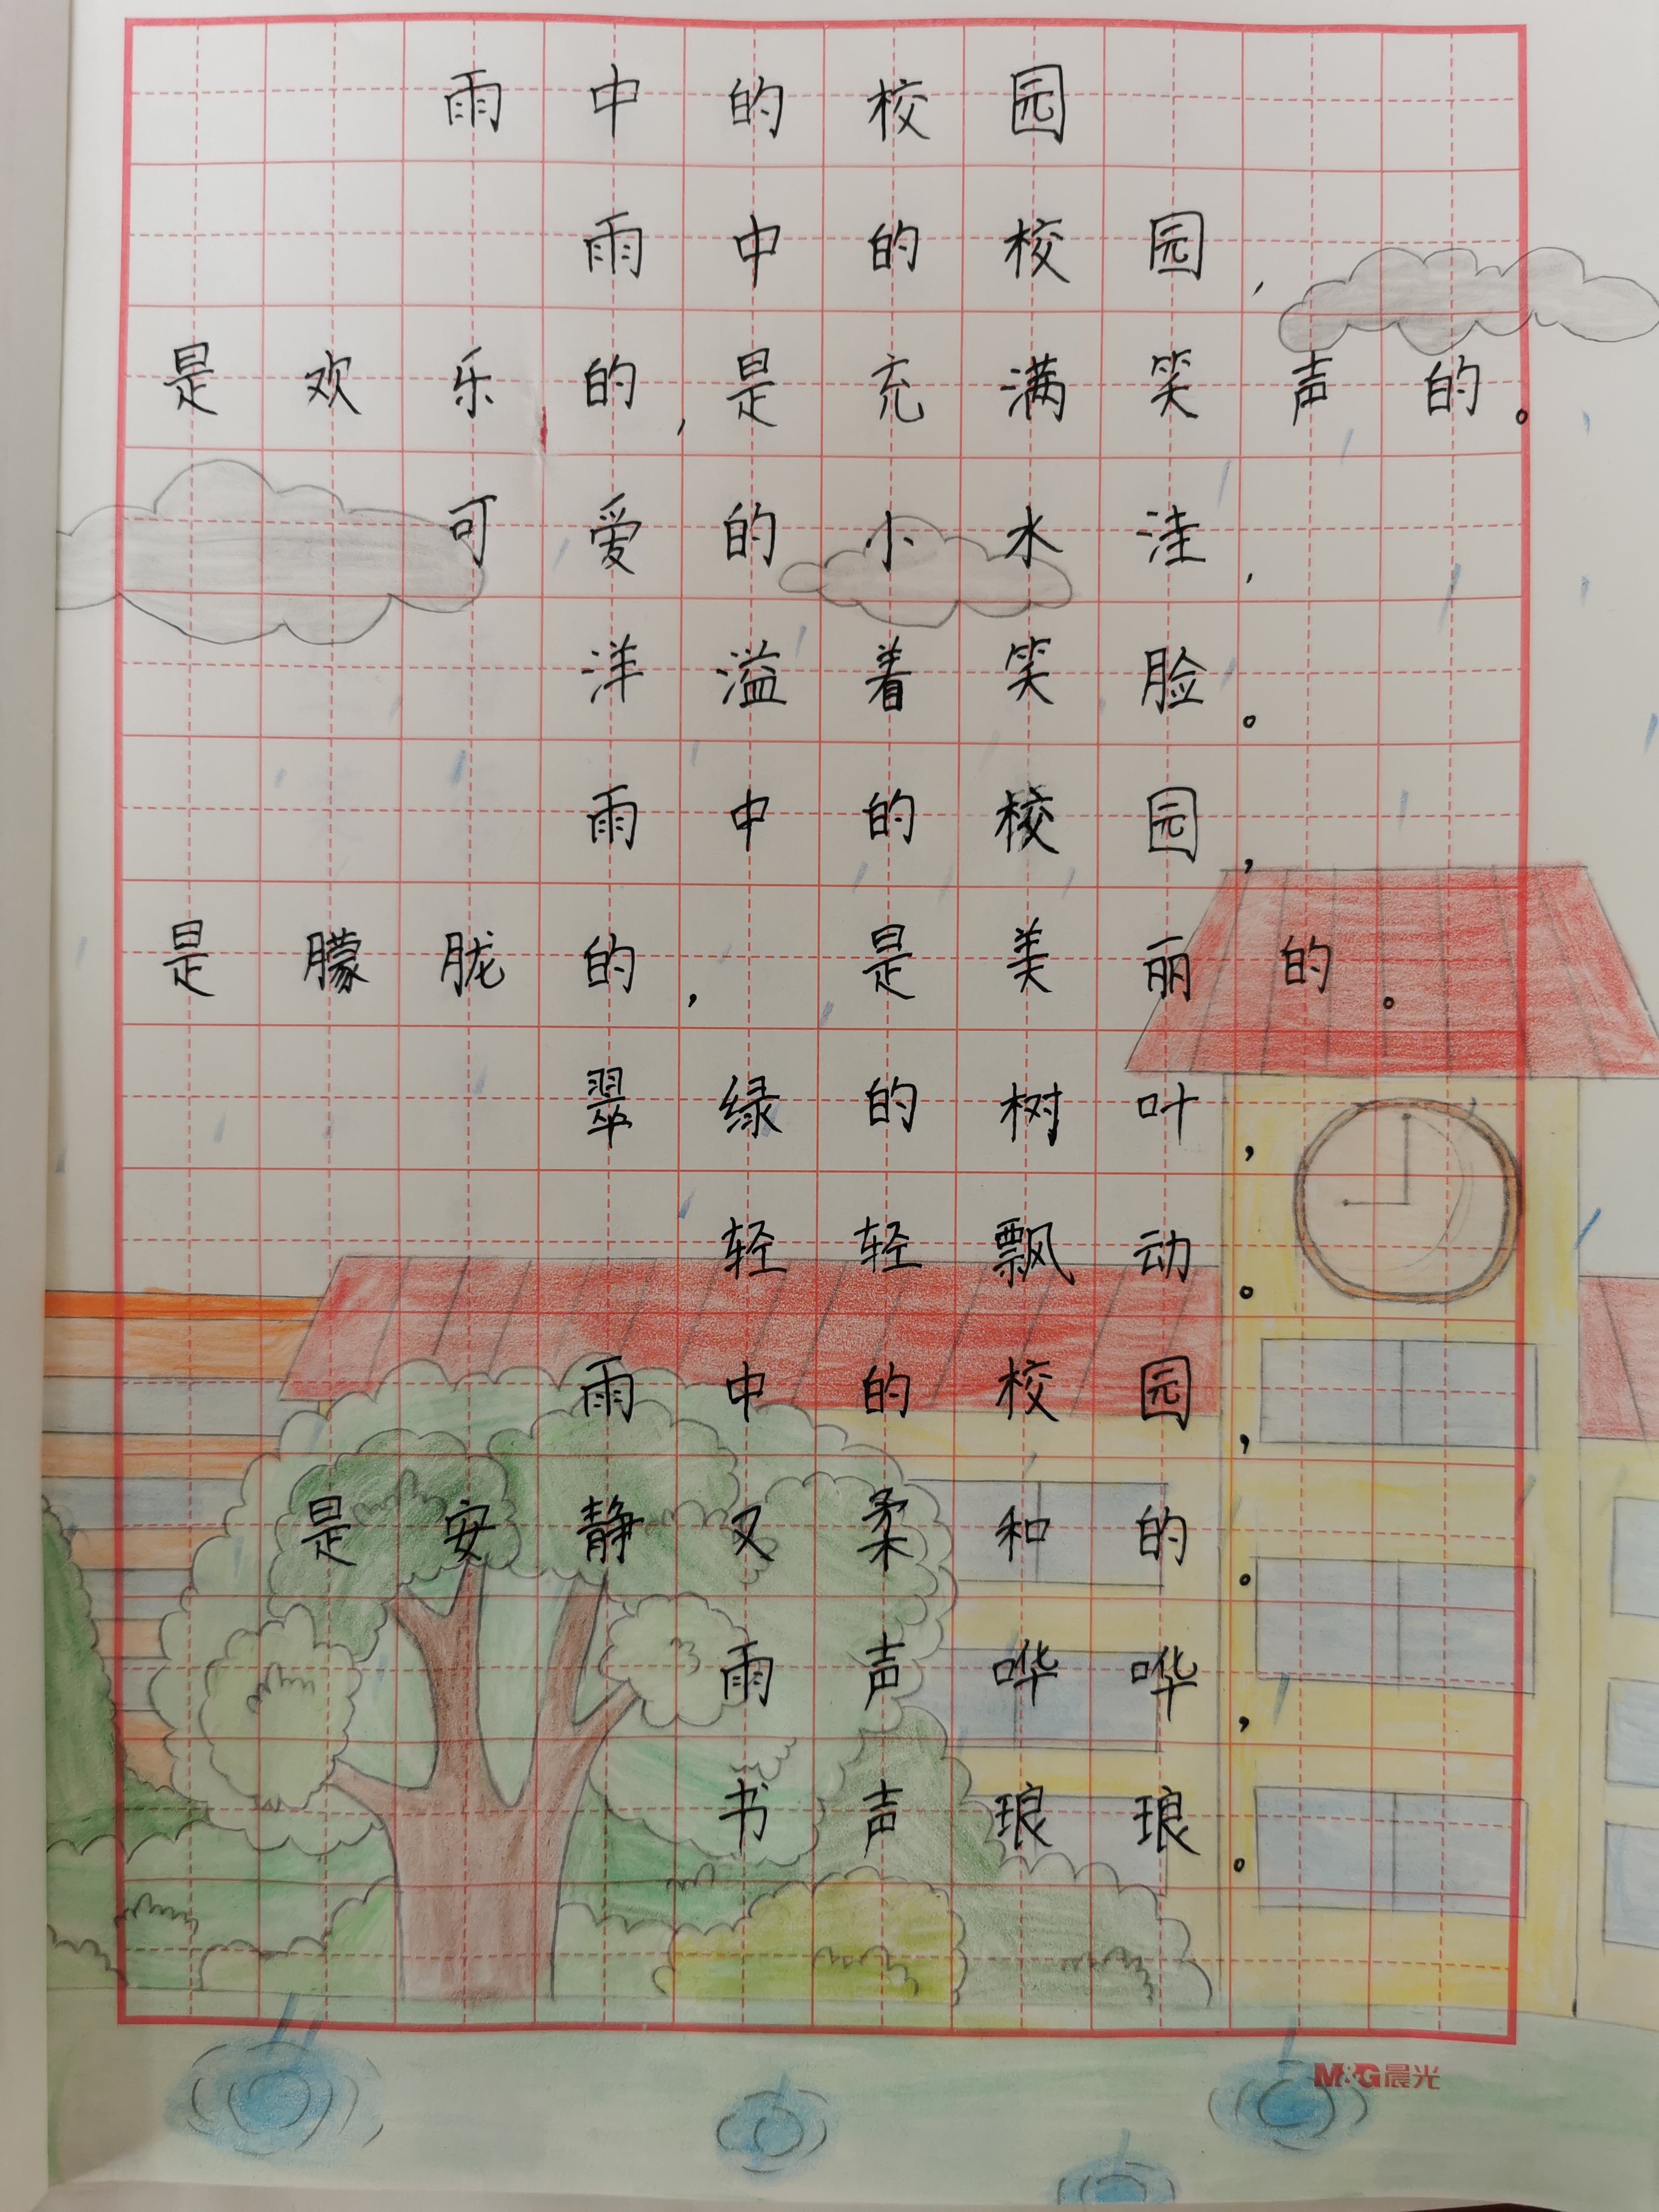 雨中的校园
雨中的校园，
是欢乐的，是充满笑声的。
可爱的小水洼，
洋溢着笑脸。
雨中的校园，
是朦胧的，是美丽的。
翠绿的树叶，
轻轻飘动。
雨中的校园，
是安静又柔和的。
雨声哗哗，
书声琅琅。
M&G晨光